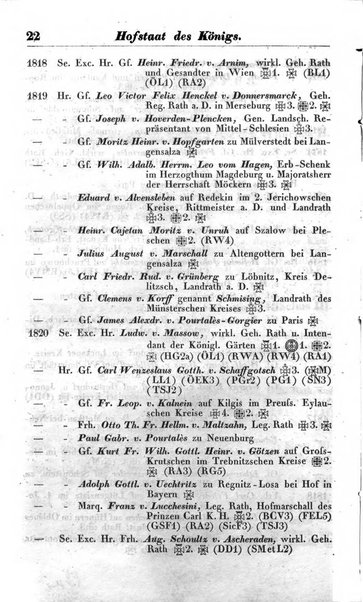 22 Hofstaat des Königs.
1818 Se. Exc. Hr. Gf. Heinr. Friedr. v. Arnim, wirkl. Geh. Rath
und Gesandter in Wien 1. (BL1)
(ÖL1) (RA2)
1819 Hr. Gf. Leo Victor Felix Henckel v. Donnersmarck, Geh.
Reg. Rath a. D. in Merseburg 3. 2.
— — Gf. Joseph v. Hoverden-Plencken, Gen. Landsch. Re-
präsentant von Mittel-Schlesien 3.
— — Gf. Moritz Heinr. v. Hopfgarten zu Mülverstedt bei Lan-
gensalza
— — Gf. Wilh. Adalb. Herrm. Leo vom Hagen, Erb-Schenk
im Herzogthum Magdeburg u. Majoratsherr
der Herrschaft Möckern 3.
— — Eduard v. Alvensleben auf Redekin im 2. Jerichowschen
Kreise, Rittmeister a. D. und Landrath
3. 2.
— — Heinr. Cajetan Moritz v. Unruh auf Szalow bei Ple-
schen 2. (RW4)
— — Julius August v. Marschall zu Altengottern bei Lan-
gensalza
— — Carl Friedr. Rud. v. Grünberg zu Löbnitz, Kreis De-
litzsch, Landrath a. D.
— — Gf. Clemens v. Korff genannt Schmising, Landrath des
Münsterschen Kreises 3.
— — Gf. James Alexdr. v. Pourtalès-Gorgier zu Paris
1820 Se. Exc. Hr. Ludw. v. Massow, wirkl. Geh. Rath u. Inten-
dant der Königl. Gärten 1. 1. 2.
(HG2a) (ÖL1) (RWA) (RW4) (RA1)
— Hr. Gf. Carl Wenzeslaus Gotth. v. Schaffgotsch 3. (M)
(LL1) (ÖEK3) (PGr2) (PG1) (SN3)
(TSJ3)
— — Gf. Fr. Leop. v. Kalnein auf Kilgis im Preufs. Eylau-
schen Kreise 4. 2.
— — Frh. Otto Th. Fr. Hellm. v. Maltzahn, Leg. Rath 3.
— — Paul Gabr. v. Pourtalès zu Neuenburg
— — Gf. Kurt Fr. Wilh. Gottl. Heinr. v. Götzen auf Grofs-
Krutschen im Trebnitzschen Kreise 2.
(RA3) (RG5)
— — Adolph Gottl. v. Uechtritz zu Regnitz-Losa bei Hof in
Bayern
— — Marq. Franz v. Lucchesini, Leg. Rath, Hofmarschall des
Prinzen Carl K. H. 2. (BCV3) (FEL5)
(GSF1) (RA2) (SicF3) (TSJ3)
— Se. Exc. Hr. Frh. Aug. Schoultz v. Ascheraden, wirkl. Geh.
Rath (DD1) (SMetL2)